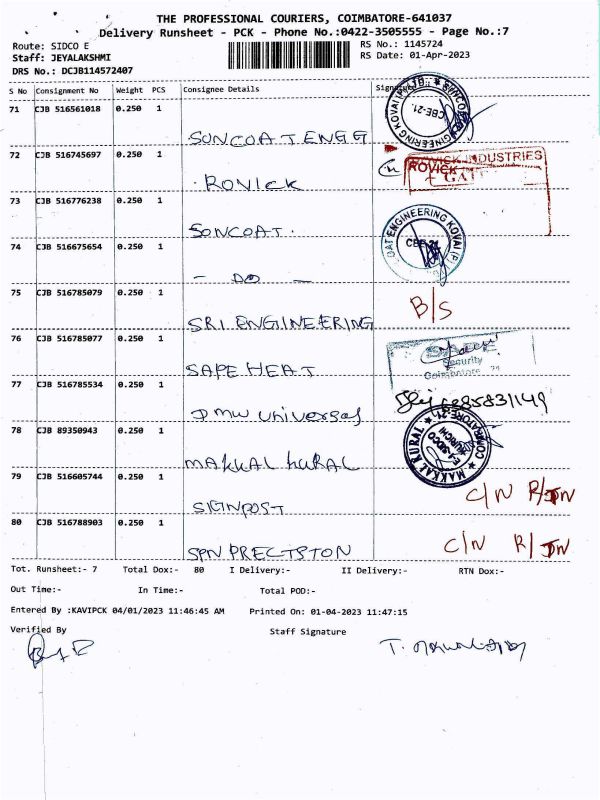 THE PROFESSIONAL COURIERS, COIMBATORE-641037
Delivery Runsheet - PCK - Phone No.:0422-3505555 - Page No.:7
Route: SIDCO E
RS No.: 1145724
Staff: JEYALAKSHMI
RS Date: 01-Apr-2023
DRS No.: DCJB114572407
S No Consignment No Weight PCS Consignee Details
71 CJB 516561018 0.250 1
SUNCOAT ENGG
72 CJB 516745697 0.250 1
ROVICK INDUSTRIES
ROVICK
73 CJB 516776238 0.250 1
SUNCOAT.
74 CJB 516675654 0.250 1
- DO -
75 CJB 516785079 0.250 1
B/S
SRI ENGINEERING
76 CJB 516785077 0.250 1
Security
Coimbatore 21
SAPE HEAT
77 CJB 516785534 0.250 1
DMW Universal
78 CJB 89350943 0.250 1
MAKKAL KURAL
COIMBATORE-21
E-J.SIDCO
KURICHI
MAKKAL KURAL
79 CJB 516605744 0.250 1
C/N R/JN
SIGNPOST
80 CJB 516788903 0.250 1
C/N R/JN
SPN PRECISTON
Tot. Runsheet:- 7 Total Dox:- 80 I Delivery:- II Delivery:- RTN Dox:-
Out Time:- In Time:- Total POD:-
Entered By :KAVIPCK 04/01/2023 11:46:45 AM Printed On: 01-04-2023 11:47:15
Verified By Staff Signature